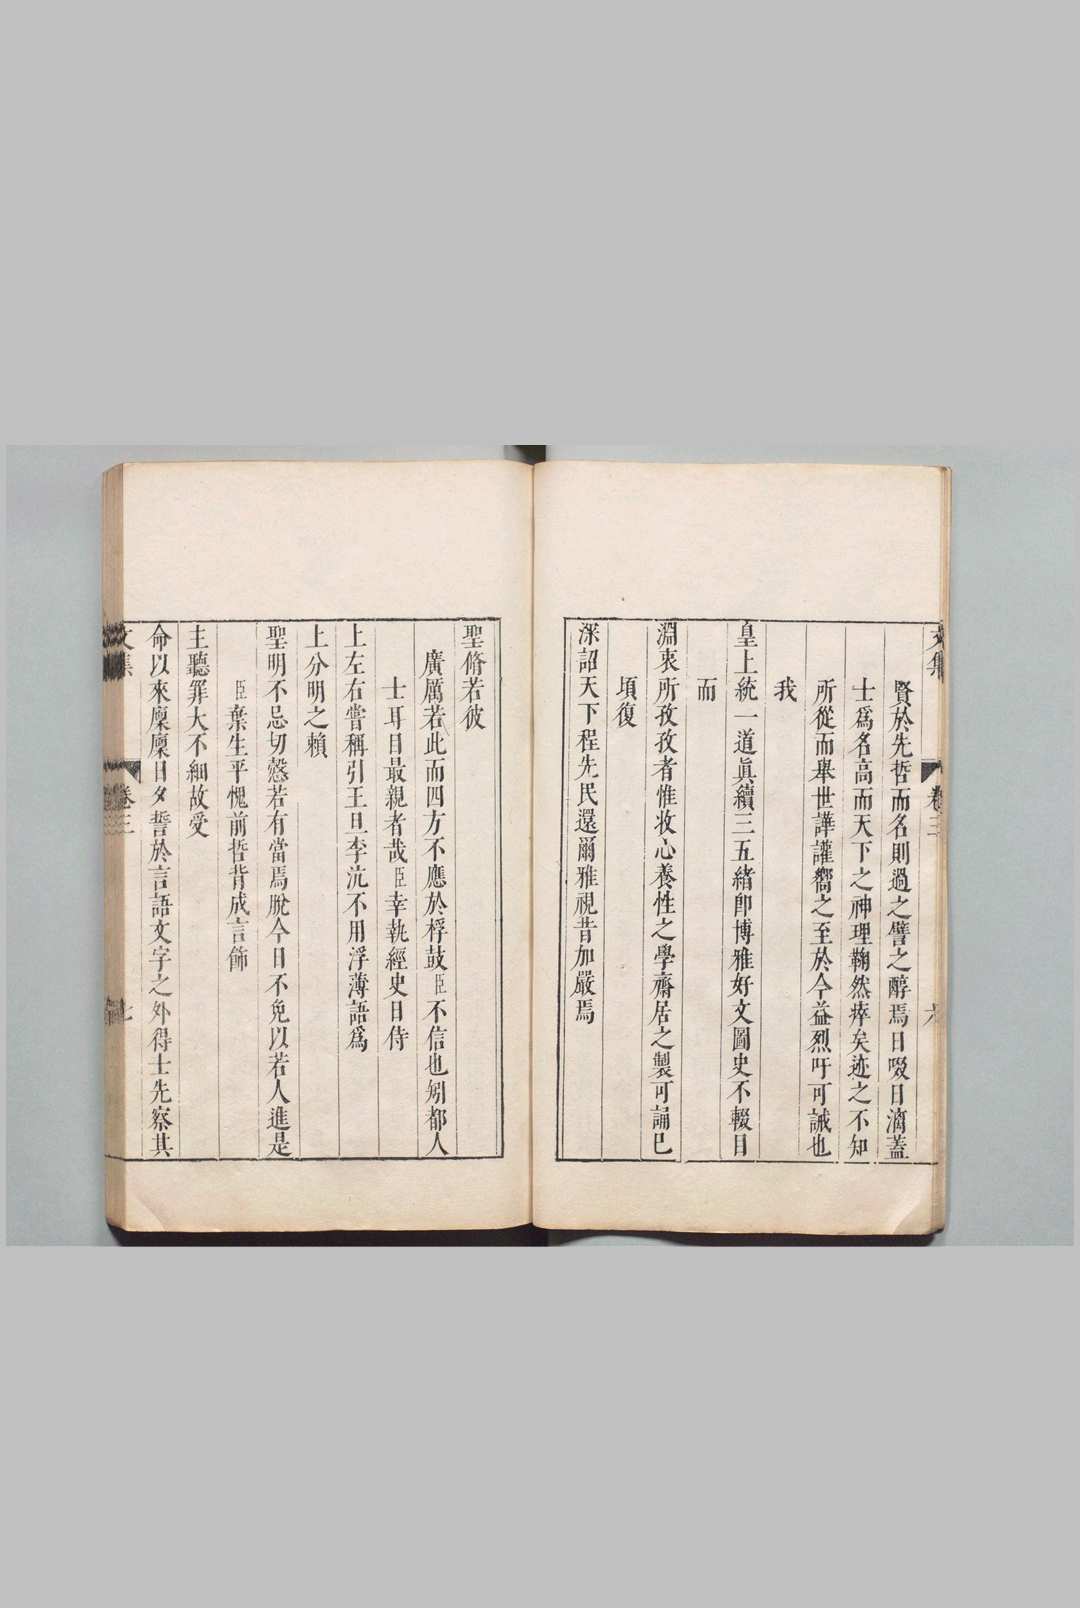 文集
卷三
六
賢於先哲而名則過之譬之醇焉日啜日漓蓋
士爲名高而天下之神理鞠然瘁矣迹之不知
所從而舉世譁讙嚮之至於今益烈吁可誡也
我
皇上統一道眞續三五緒卽博雅好文圖史不輟目
而
淵衷所孜孜者惟收心養性之學齋居之製可誦巳
頃復
深詔天下程先民還爾雅視昔加嚴焉
聖脩若彼
廣厲若此而四方不應於桴鼓臣不信也矧都人
士耳目最親者哉臣幸執經史日侍
上左右嘗稱引王旦李沆不用浮薄語爲
上分明之賴
聖明不忌切愨若有當焉脫今日不免以若人進是
臣棄生平愧前哲背成言飾
主聽罪大不細故受
命以來廩廩日夕誓於言語文字之外得士先察其
文集
卷三
七